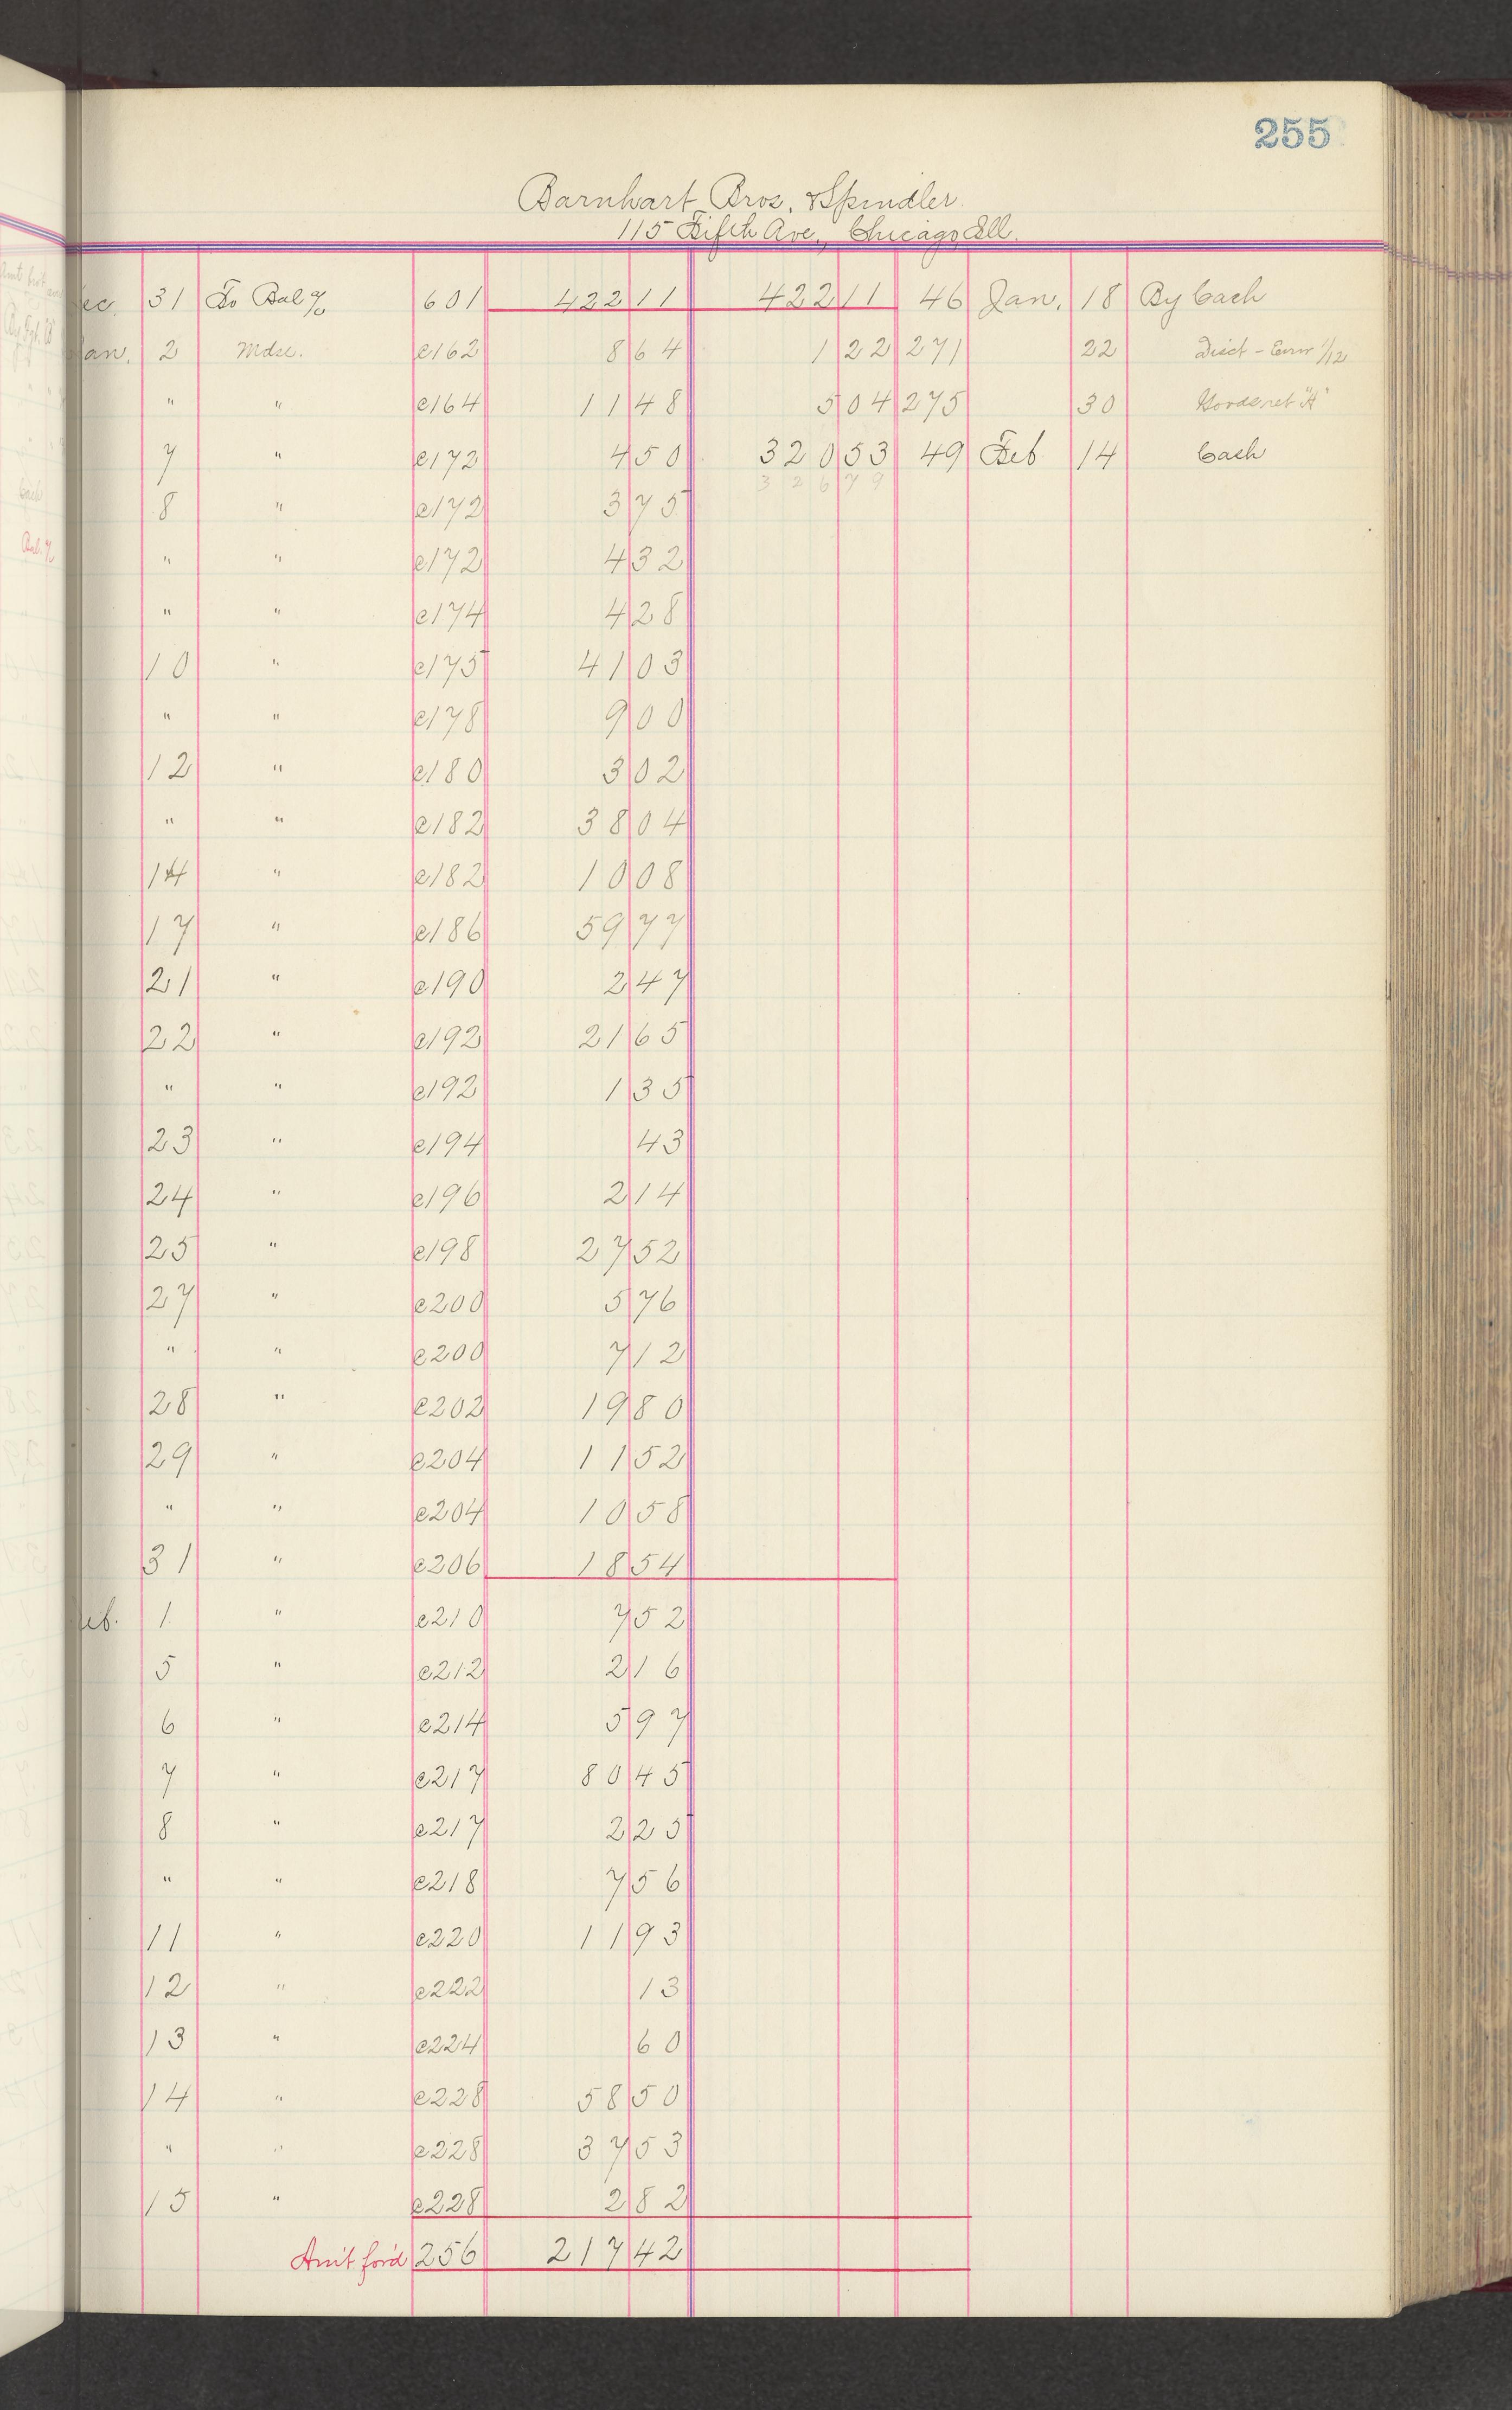 255
Barnhart Bros. & Spindler
115 Fifth Ave., Chicago Ill.
ec. 31 To Bal % 601 422 11 422 11 46 Jan. 18 By Cash
an. 2 Mdse. c162 8 64 1 22 271 22 Disct - Error 1/12
" " c164 11 48 5 04 275 30 Goods ret "A"
7 " c172 4 50 320 53 49 Feb 14 Cash
326 79
8 " c172 3 75
" " c172 4 32
" " c174 4 28
10 " c175 41 03
" " c178 9 00
12 " c180 3 02
" " c182 38 04
14 " c182 10 08
17 " c186 59 77
21 " c190 2 47
22 " c192 21 65
" " c192 1 35
23 " c194 43
24 " c196 2 14
25 " c198 27 52
27 " c200 5 76
" " c200 7 12
28 " c202 19 80
29 " c204 11 52
" " c204 10 58
31 " c206 18 54
eb. 1 " c210 7 52
5 " c212 2 16
6 " c214 5 97
7 " c217 80 45
8 " c217 2 25
" " c218 7 56
11 " c220 11 93
12 " c222 13
13 " c224 60
14 " c228 58 50
" " c228 37 53
15 " c228 2 82
Am't for'd 256 217 42